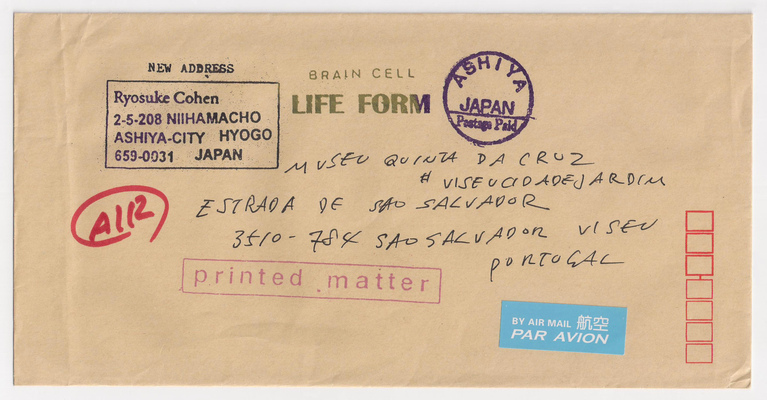 NEW ADDRESS
Ryosuke Cohen
2-5-208 NIIHAMACHO
ASHIYA-CITY HYOGO
659-0031 JAPAN
BRAIN CELL
LIFE FORM
ASHIYA
JAPAN
Postage Paid
MUSEU QUINTA DA CRUZ
# VISEUCIDADEJARDIM
ESTRADA DE SAO SALVADOR
3510-784 SAO SALVADOR VISEU
PORTOGAL
A112
printed matter
BY AIR MAIL 航空
PAR AVION